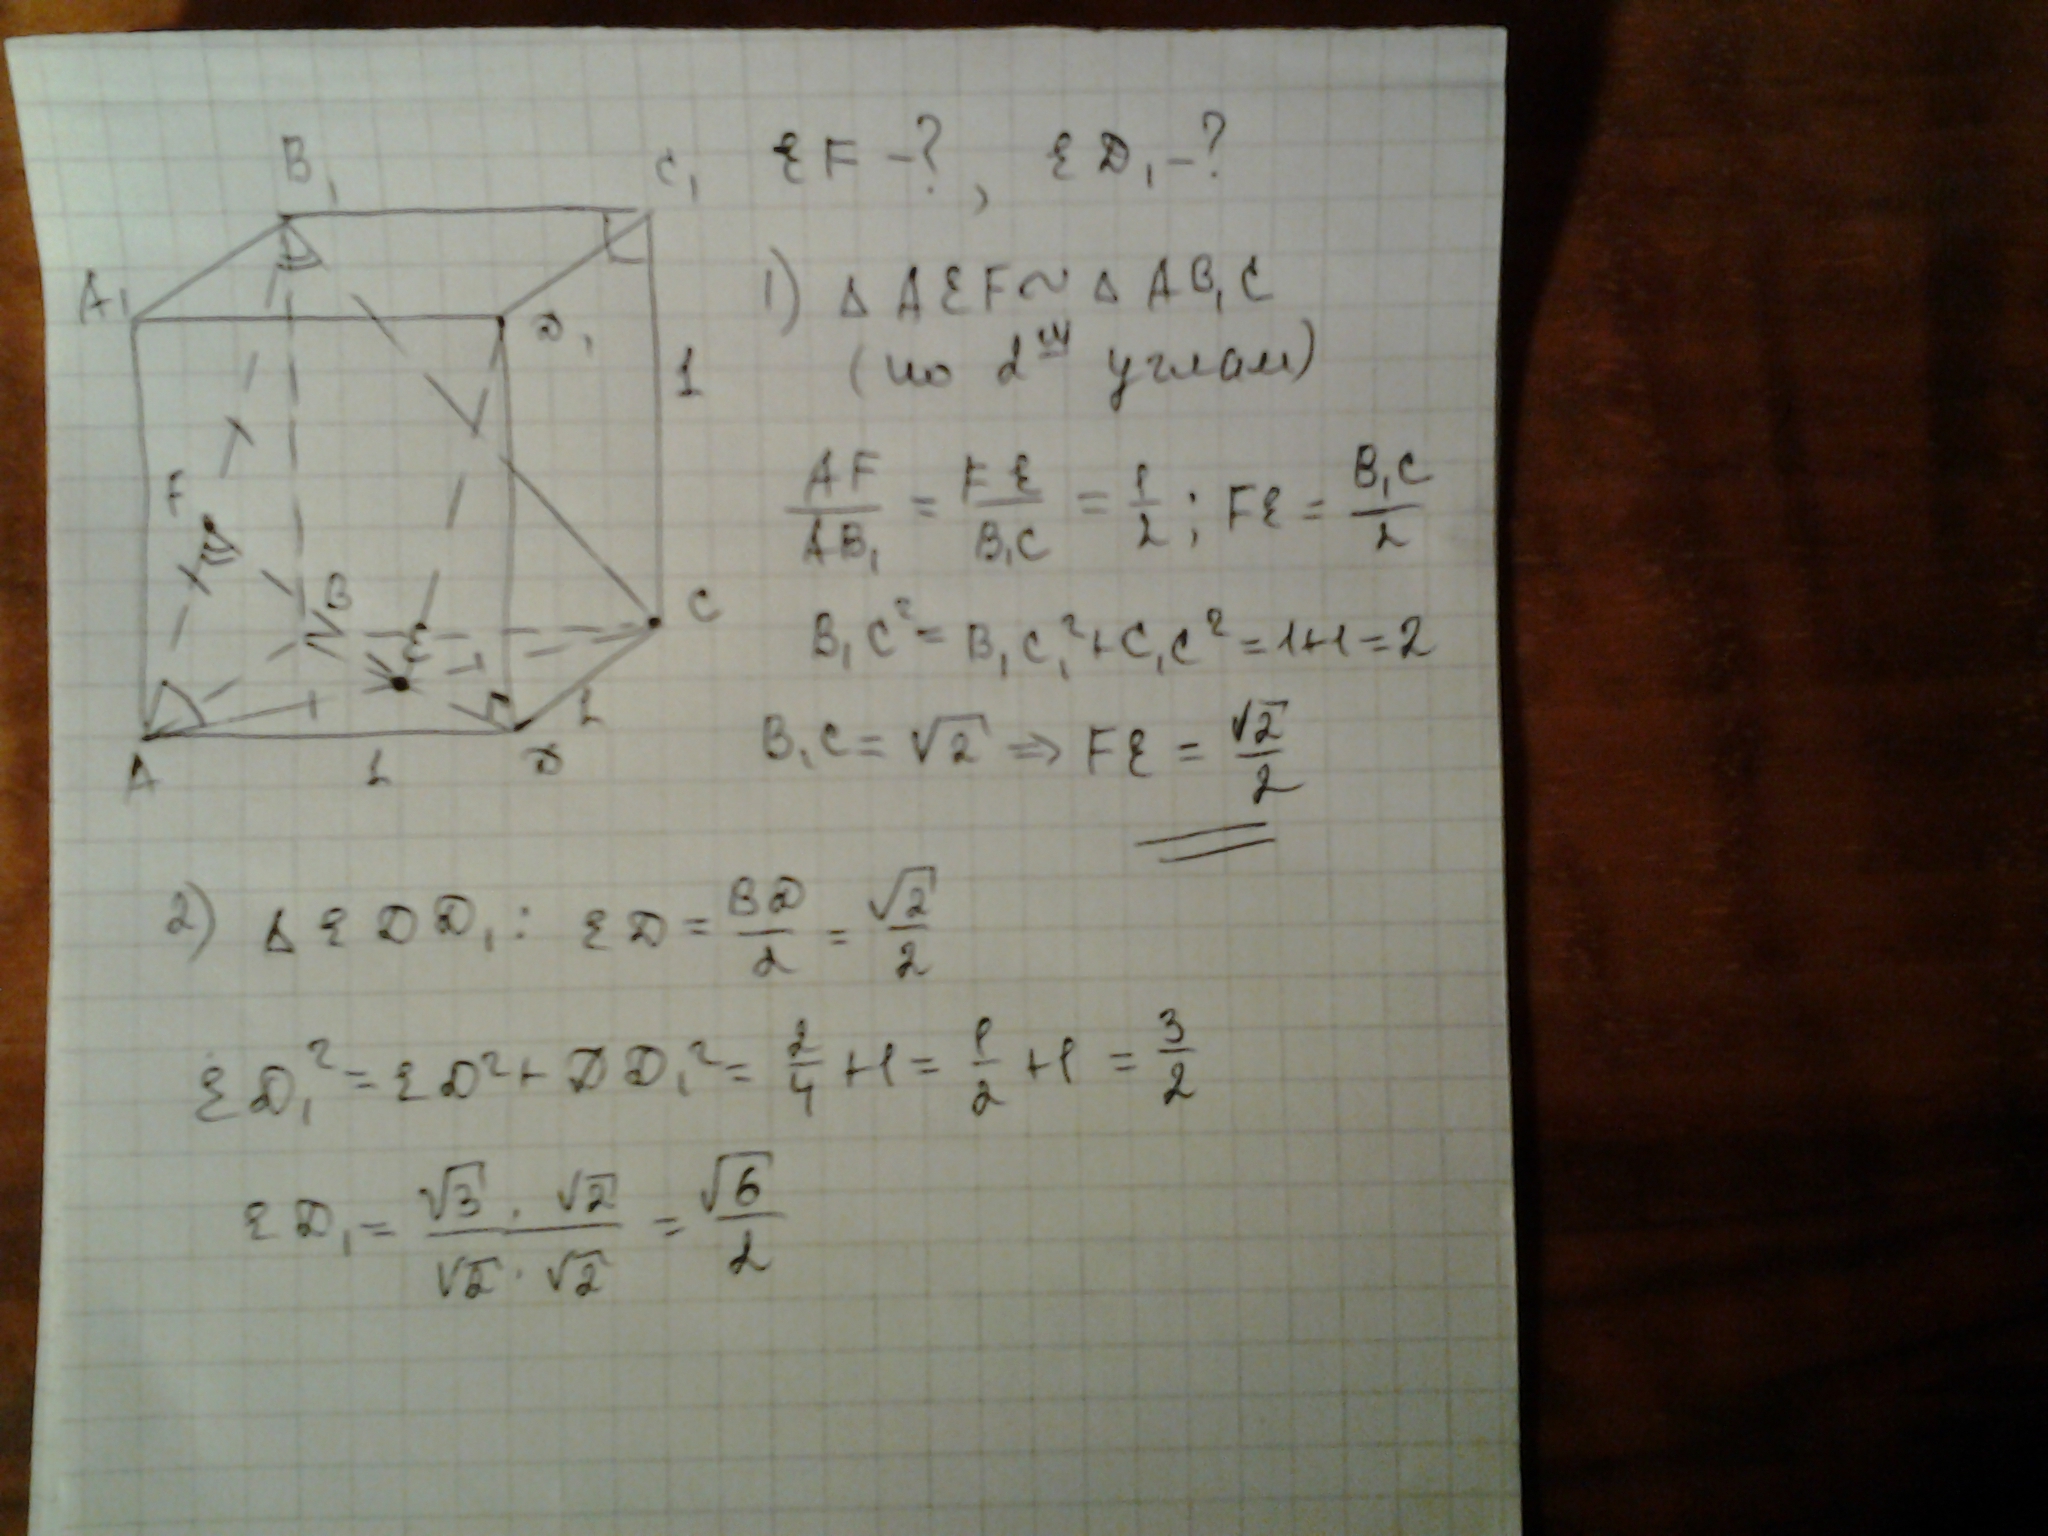 B₁
C₁
A₁
D₁
1
F
B
E
C
1
A
1
D
EF - ?, ED₁ - ?
1) Δ AEF ~ Δ AB₁C
(по 2ᵐ углам)
AF/AB₁ = FE/B₁C = 1/2; FE = B₁C/2
B₁C² = B₁C₁² + C₁C² = 1+1 = 2
B₁C = √2 ⇒ FE = √2/2
2) Δ EDD₁: ED = BD/2 = √2/2
ED₁² = ED² + DD₁² = 2/4 + 1 = 1/2 + 1 = 3/2
ED₁ = √3 · √2 / √2 · √2 = √6/2